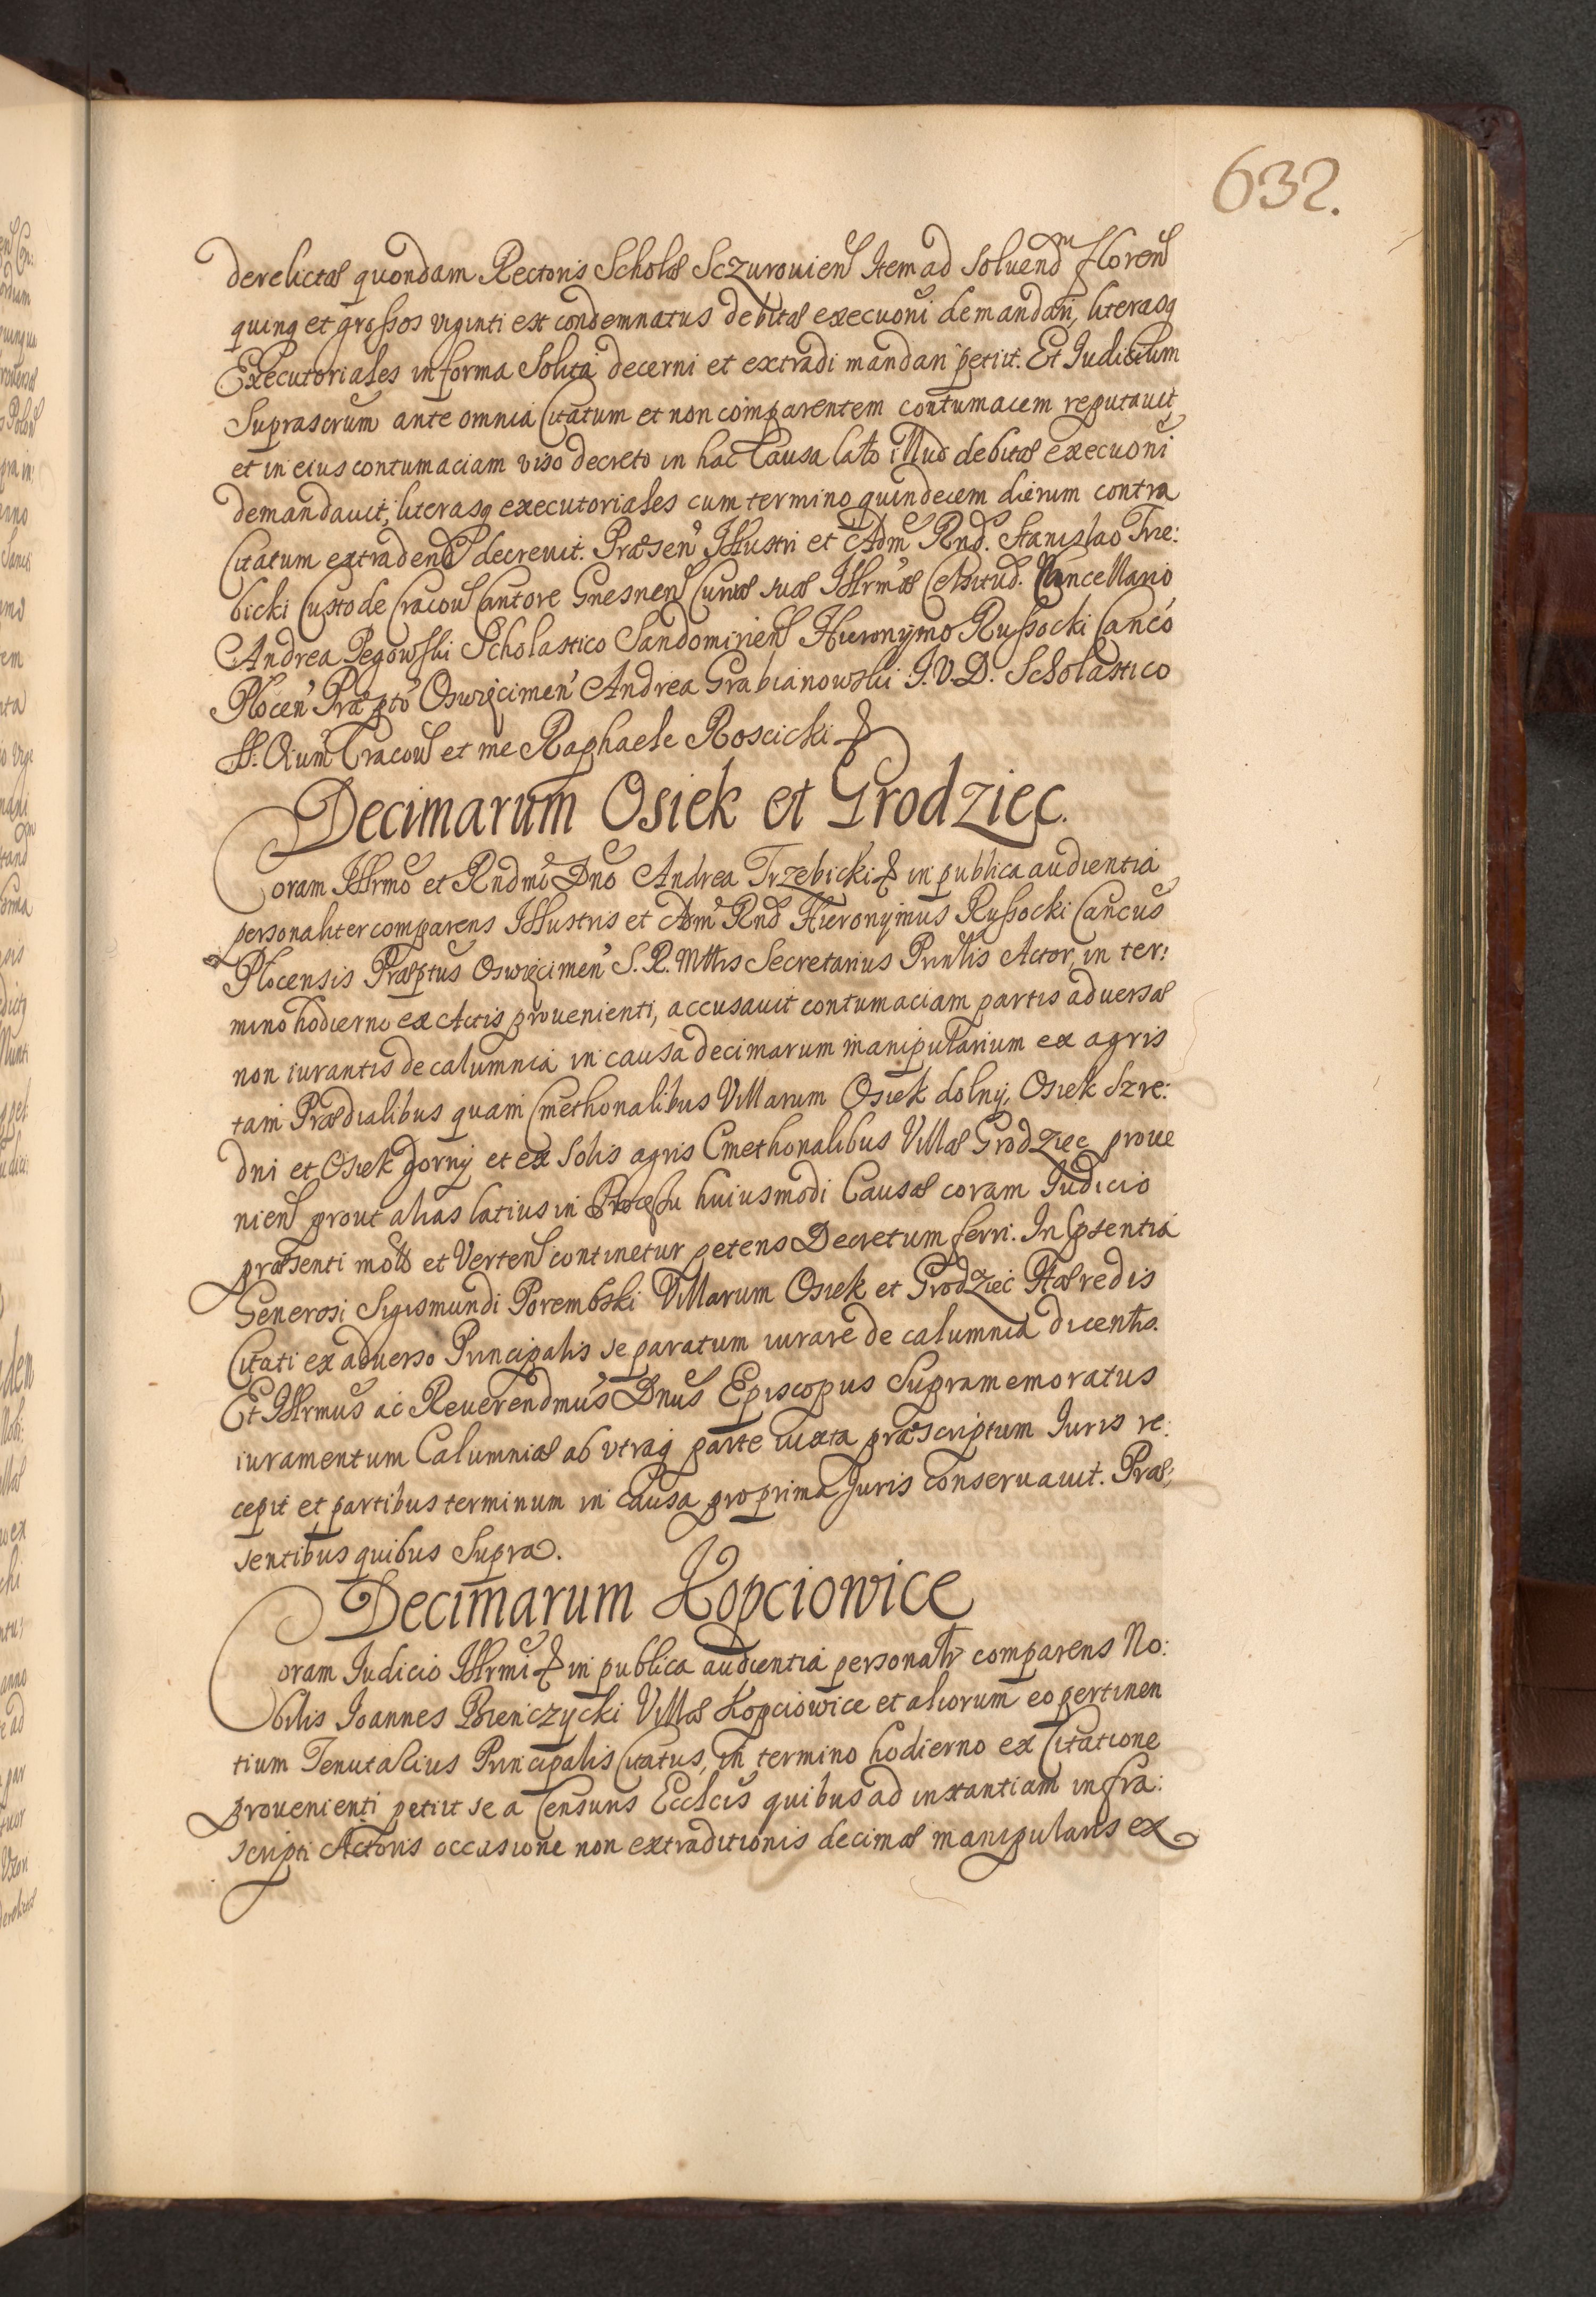 632.
derelictæ quondam Rectoris Scholæ Sczurouien Item ad soluendm floren
quinq et grossos viginti est condemnatus debitæ execuoni demandari, literasq
Executoriales in forma solita decerni et extradi mandari petiit. Et Iudicium
Suprascrum ante omnia Citatum et non comparentem contumacem reputauit
et in eius contumaciam viso decreto in hac Causa lato illud debitæ execuoni
demandauit, literasq executoriales cum termino quindecem dierum contra
Citatum extradend decreuit. Præsen Illustri et Adm Rnd. Stanislao Trze:
bicki Custode Cracou Cantore Gnesnen Curiæ suæ Illrmæ Celsitud. Cancellario
Andrea Pegowski Scholastico Sandomirien Hieronymo Russocki Canco
Plocen Præpto Oswięcimen Andrea Grabianowski I.V.D. Scholastico
SS. Oium Cracou et me Raphaele Roscicki
Decimarum Osiek et Grodziec.
Coram Illrmo et Rndmo Dno Andrea Trzebicki in publica audientia
personaliter comparens Illustris et Adm Rnd Hieronymus Russocki Cancus
Plocensis Præptus Oswięcimen S. R. Mttis Secretarius Prinlis Actor, in ter:
mino hodierno ex Actis prouenienti, accusauit contumaciam partis aduersæ
non iurantis de calumnia in causa decimarum manipularium ex agris
tam Prædialibus quam Cmethonalibus Villarum Osiek dolny, Osiek Szre:
dni et Osiek gorny et ex solis agris Cmethonalibus Villæ Grodziec proue
nien prout alias latius in Processu huiusmodi Causæ coram Iudicio
præsenti moto et Verten continetur petens Decretum ferri. In psentia
Generosi Sigismundi Porembski Villarum Osiek et Grodziec Hæredis
Citati ex aduerso Principalis se paratum iurare de calumnia dicentis.
Et Illrmus ac Reuerendmus Dnus Episcopus Supramemoratus
iuramentum Calumniæ ab vtraq parte iuxta præscriptum Iuris re:
cepit et partibus terminum in Causa pro prima Iuris conseruauit. Præ:
sentibus quibus Supra.
Decimarum Kopciowice
Coram Iudicio Illrmi in publica audientia personalr comparens No:
bilis Ioannes Bienczycki Villæ Kopciowice et aliorum eo pertinen
tium Tenutarius Principalis Citatus, in termino hodierno ex Citatione
prouenienti petiit se a Censuris Ecclcis quibus ad instantiam infra:
scripti Actoris occasione non extraditionis decimæ manipularis ex